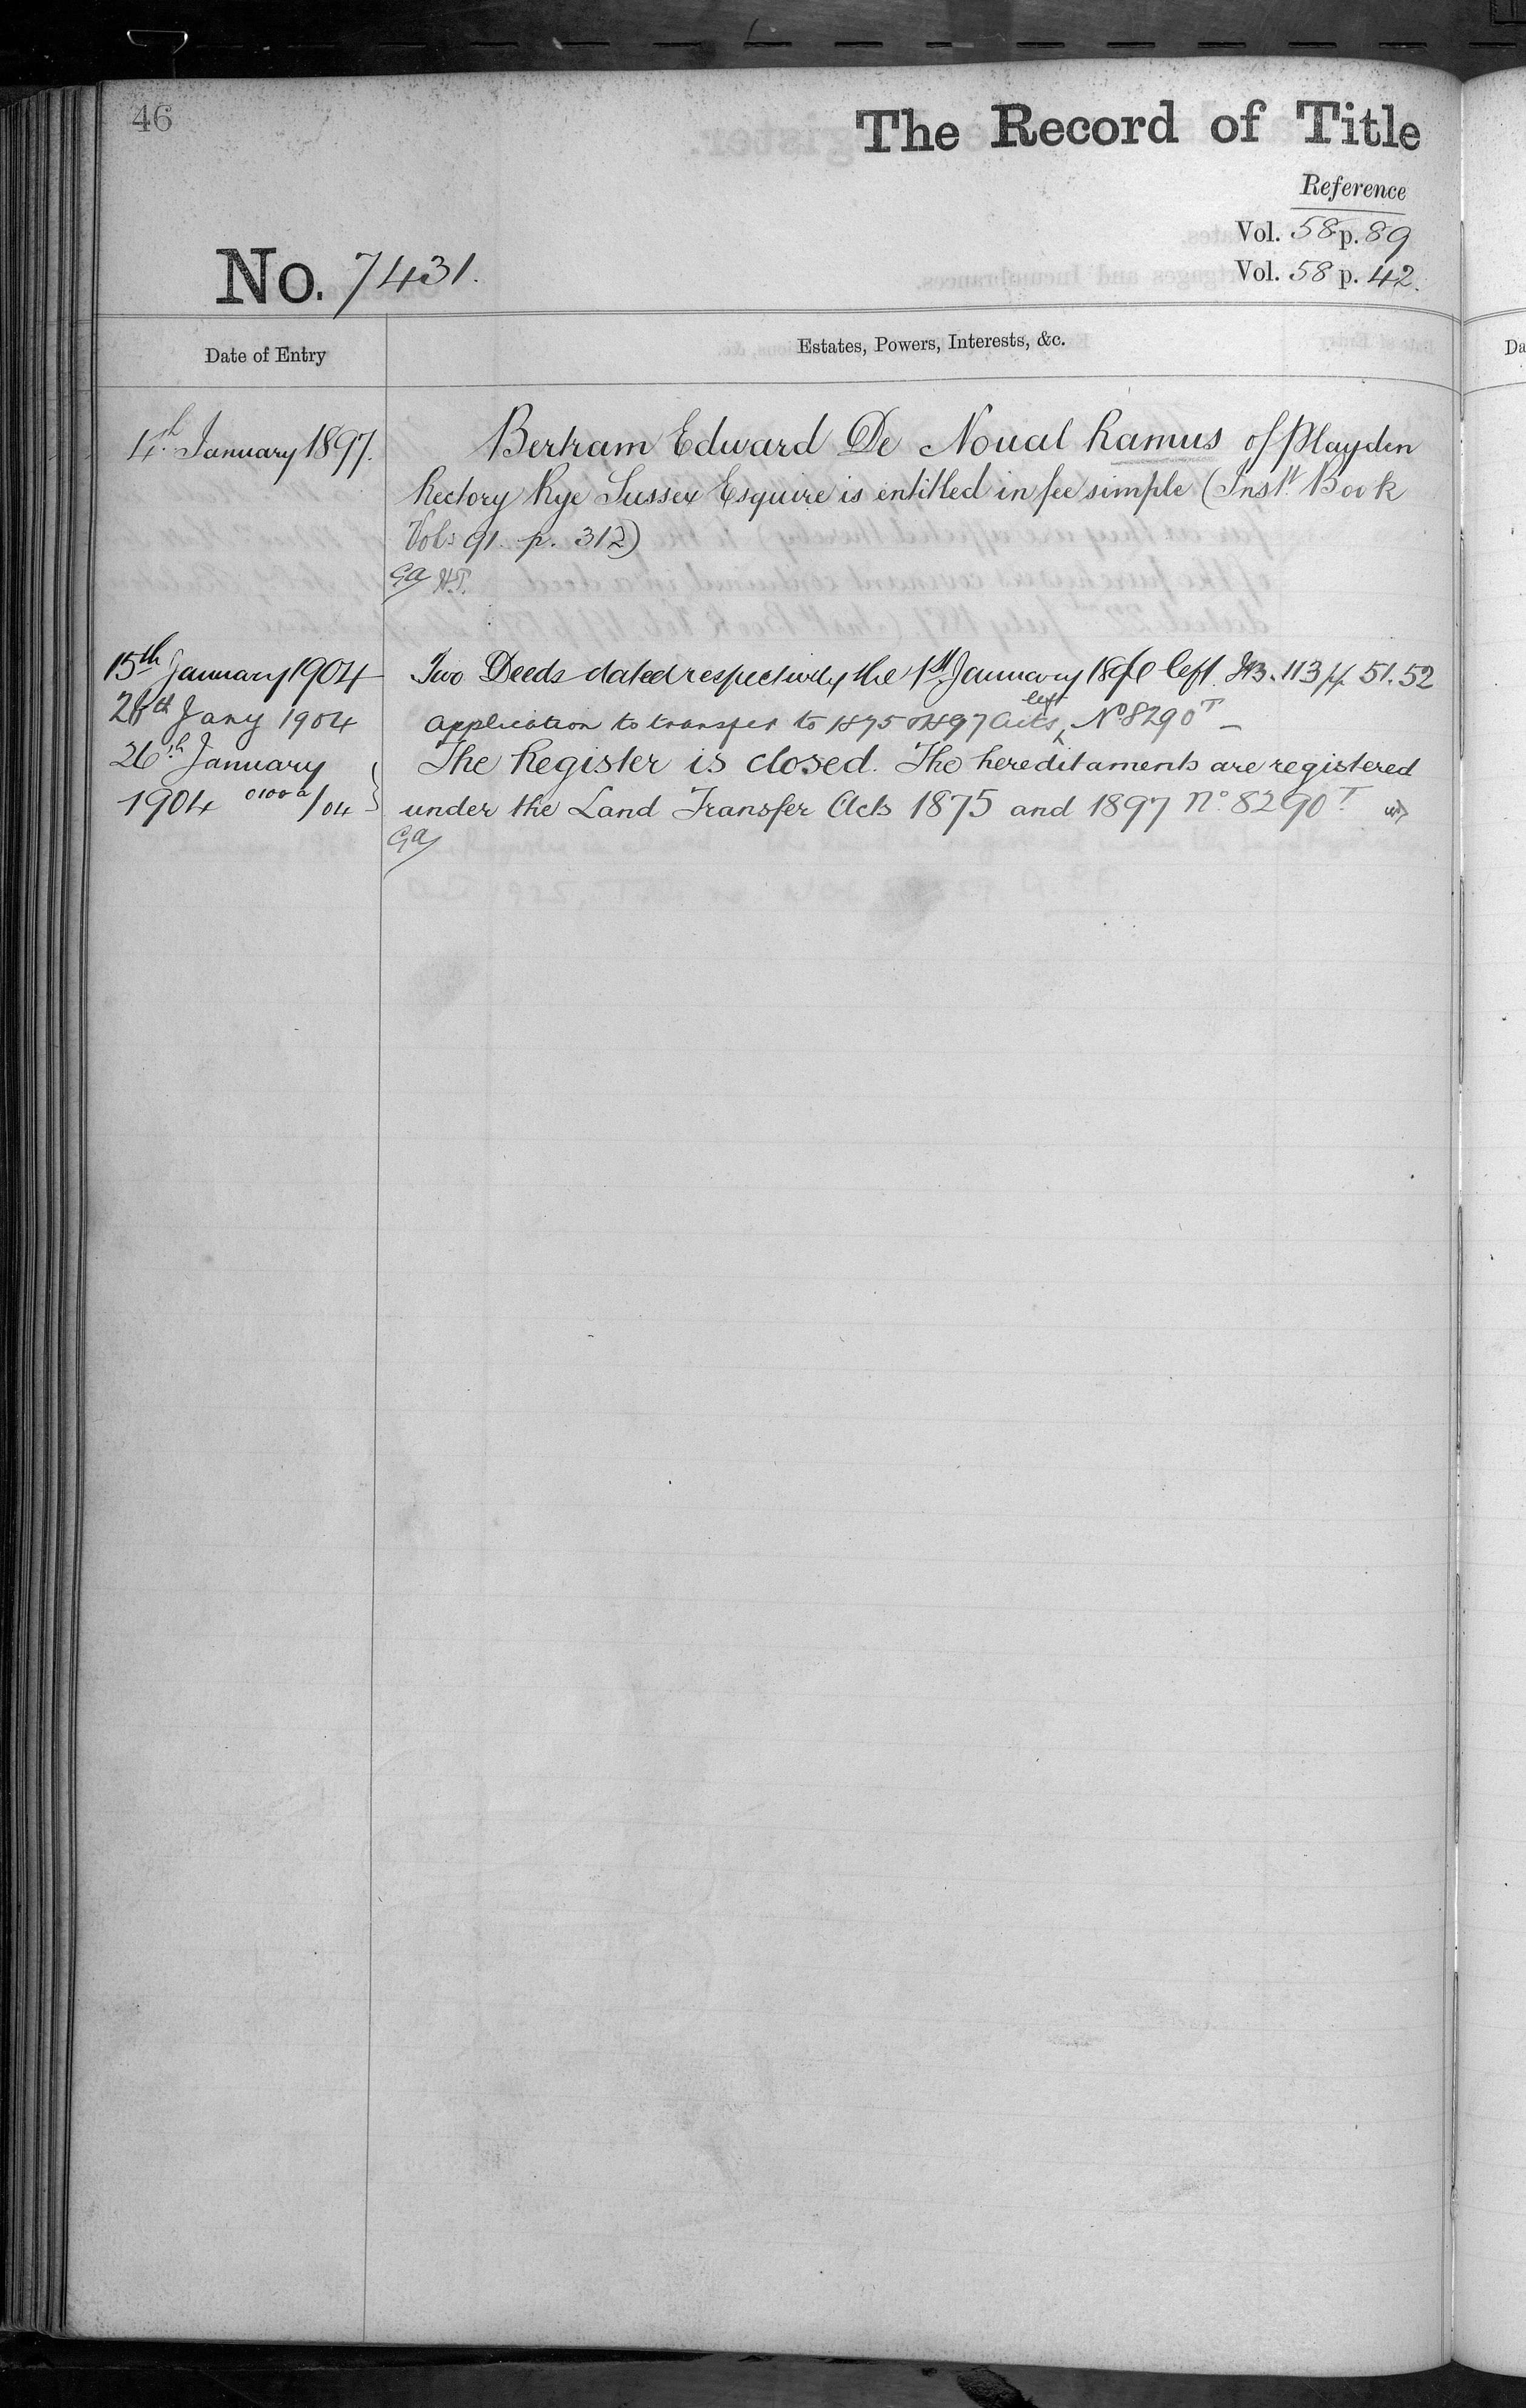 46
The Record of Title
Reference
Vol. 58 p. 89
No. 7431.
Vol. 58 p. 42.
Date of Entry
Estates, Powers, Interests, &c.
4th January 1897.
Bertram Edward De Noual Ramus of Playden
Rectory Rye Sussex Esquire is entitled in fee simple (Inst. Book
Vol: 91. p. 312)
GA
15th January 1904
Two Deeds dated respectively the 1st January left 113 pp 51. 52
Jany 1904
left
application to transfer to 1875 & 1897 Acts, No 8290T —
26th January
The Register is closed. The hereditaments are registered
1904 /04
under the Land Transfer Acts 1875 and 1897 No. 8290T
GA
Da